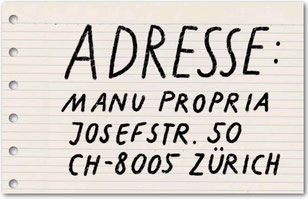 ADRESSE:
MANU PROPRIA
JOSEFSTR. 50
CH-8005 ZÜRICH